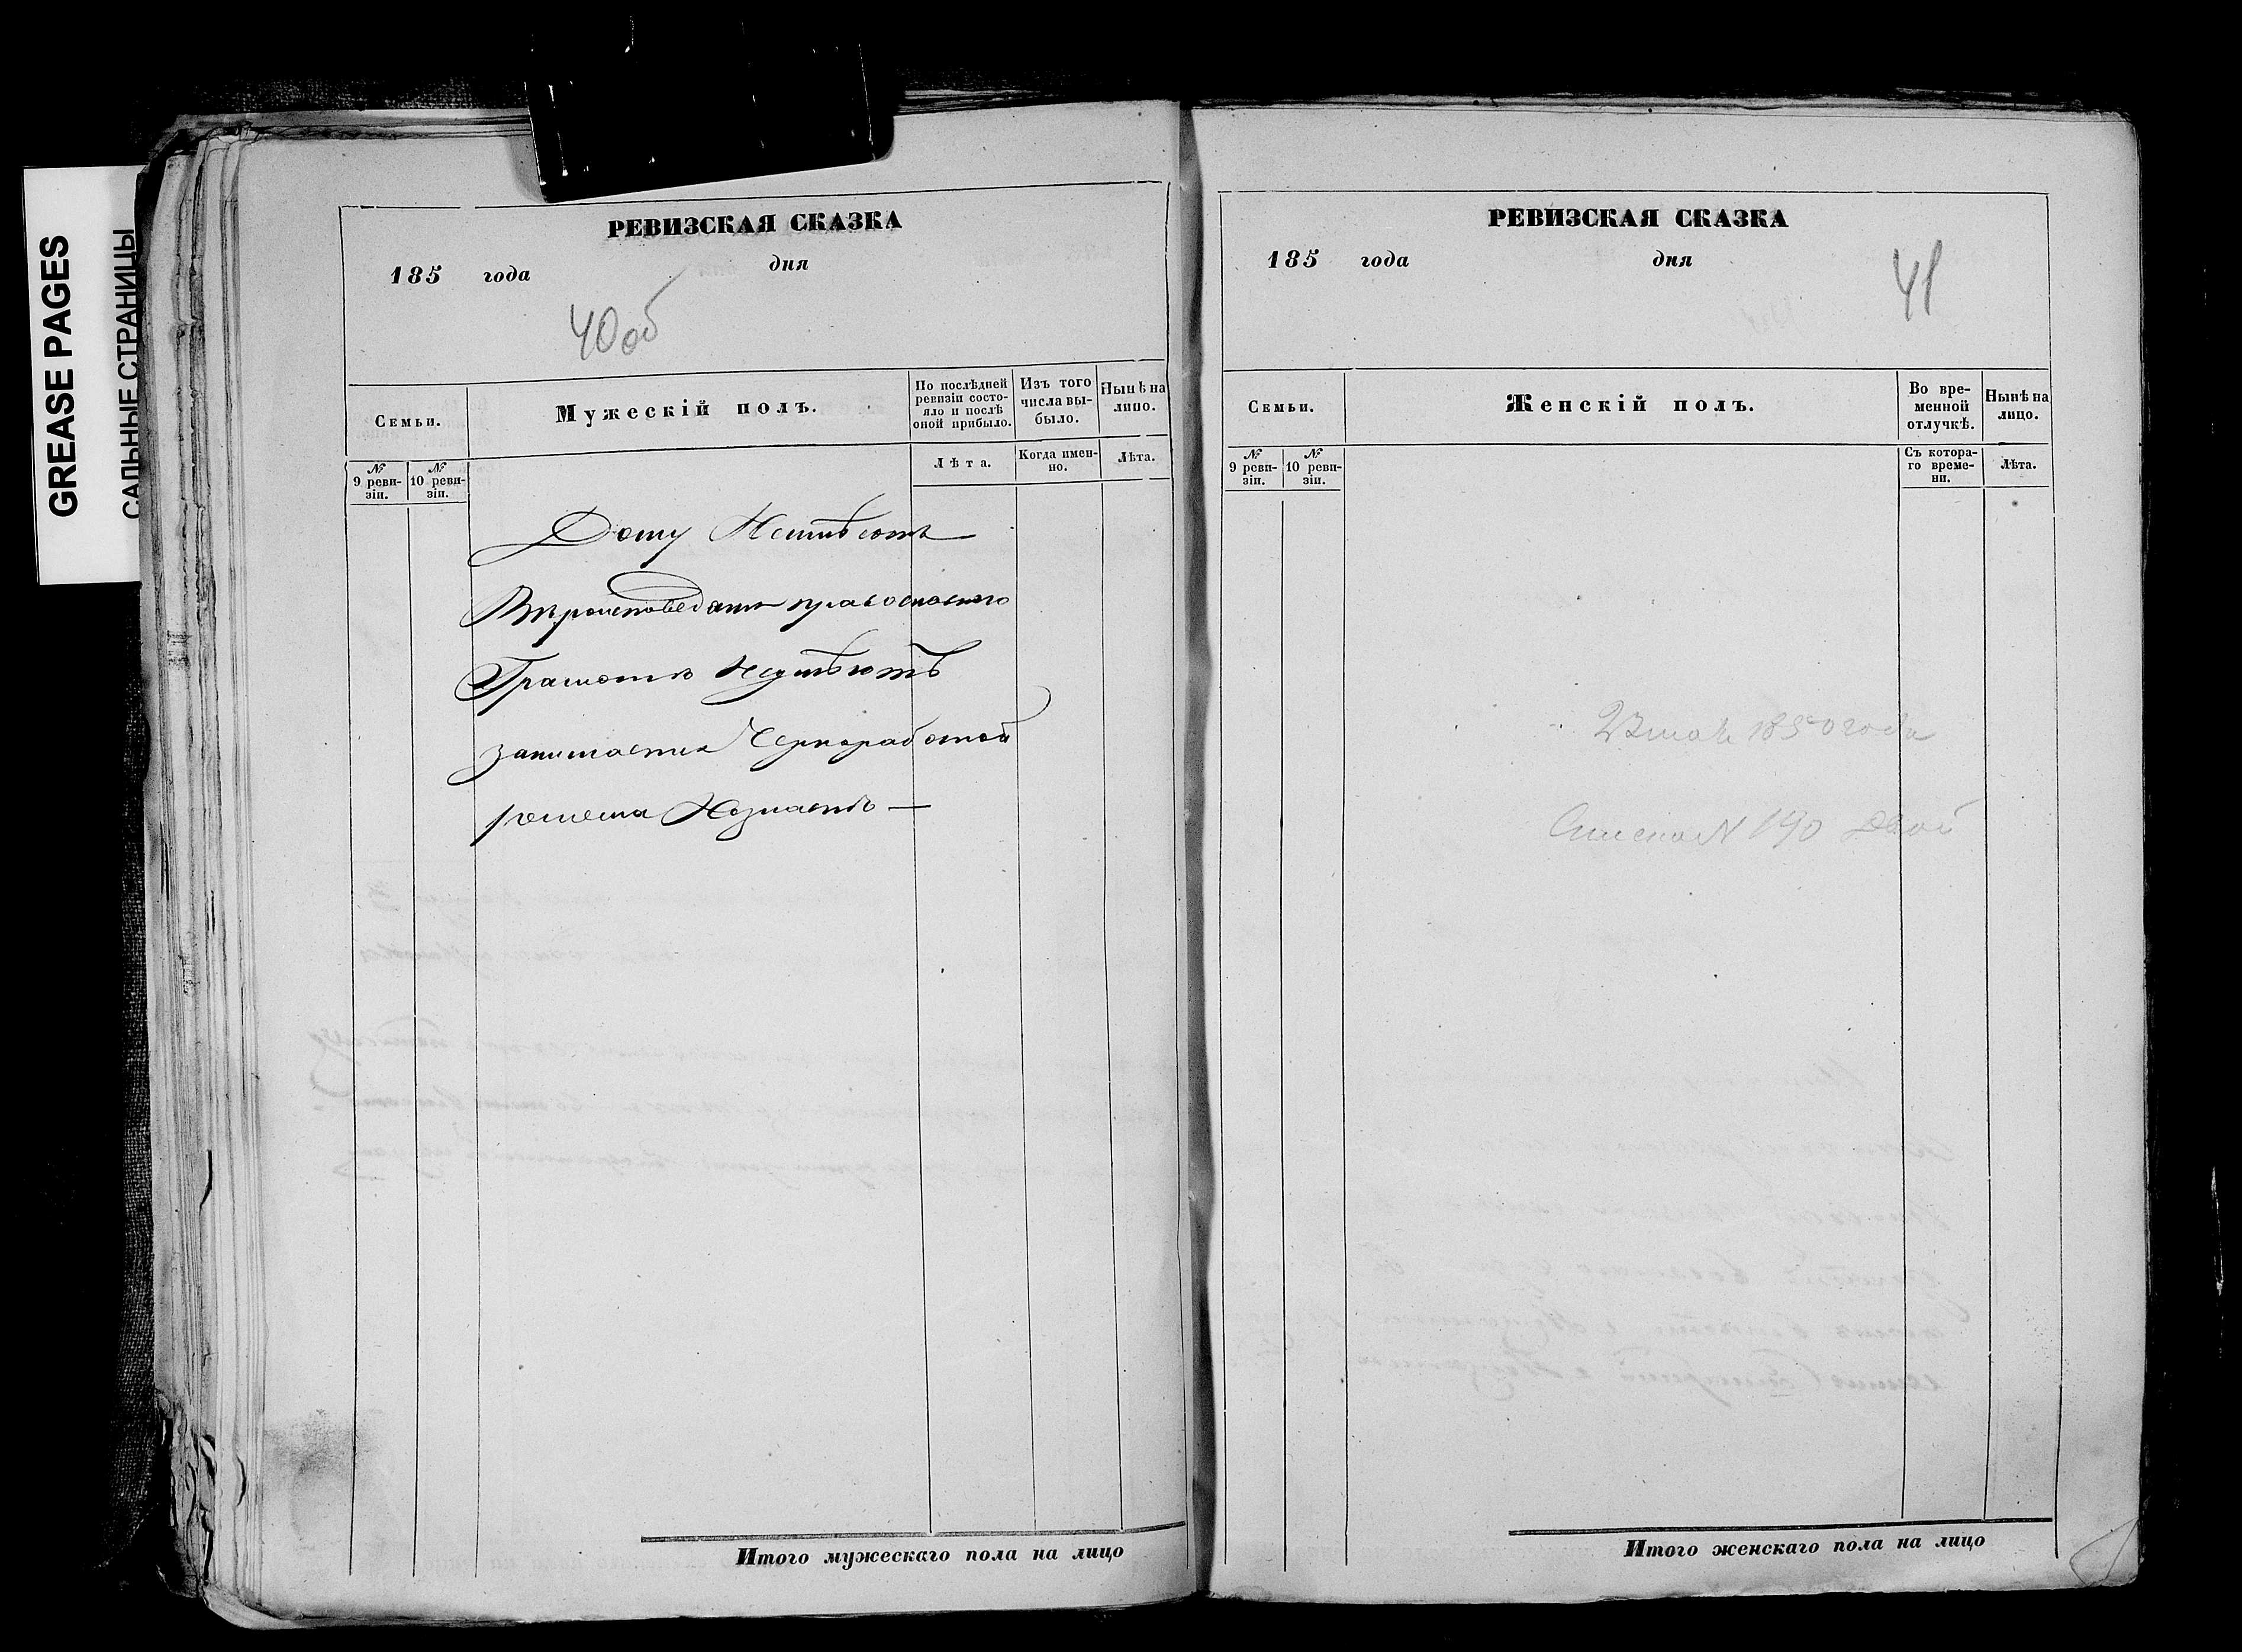 GREASE PAGES
САЛЬНЫЕ СТРАНИЦЫ
РЕВИЗСКАЯ СКАЗКА
185 года дня
40 об
Семьи.
Мужескій полъ.
По послѣдней ревизіи состояло и послѣ оной прибыло.
Изъ того числа выбыло.
Нынѣ на лицо.
№ 9 ревизіи.
№ 10 ревизіи.
Лѣта.
Когда именно.
Лѣта.
Дому Неимѣютъ
православного
Грамотѣ Неумѣютъ
занимается Чернработой
ремесла Незнаетъ —
Итого мужескаго пола на лицо
РЕВИЗСКАЯ СКАЗКА
185 года дня
41
Семьи.
Женскій полъ.
Во временной отлучкѣ.
Нынѣ на лицо.
№ 9 ревизіи.
№ 10 ревизіи.
Съ котораго времени.
Лѣта.
1850 года
№ 190
Итого женскаго пола на лицо